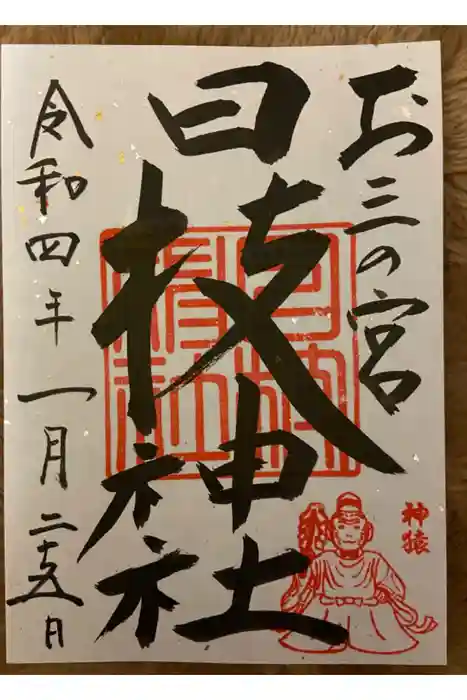 お三の宮
日枝神社
令和四年一月二十五日
神猿